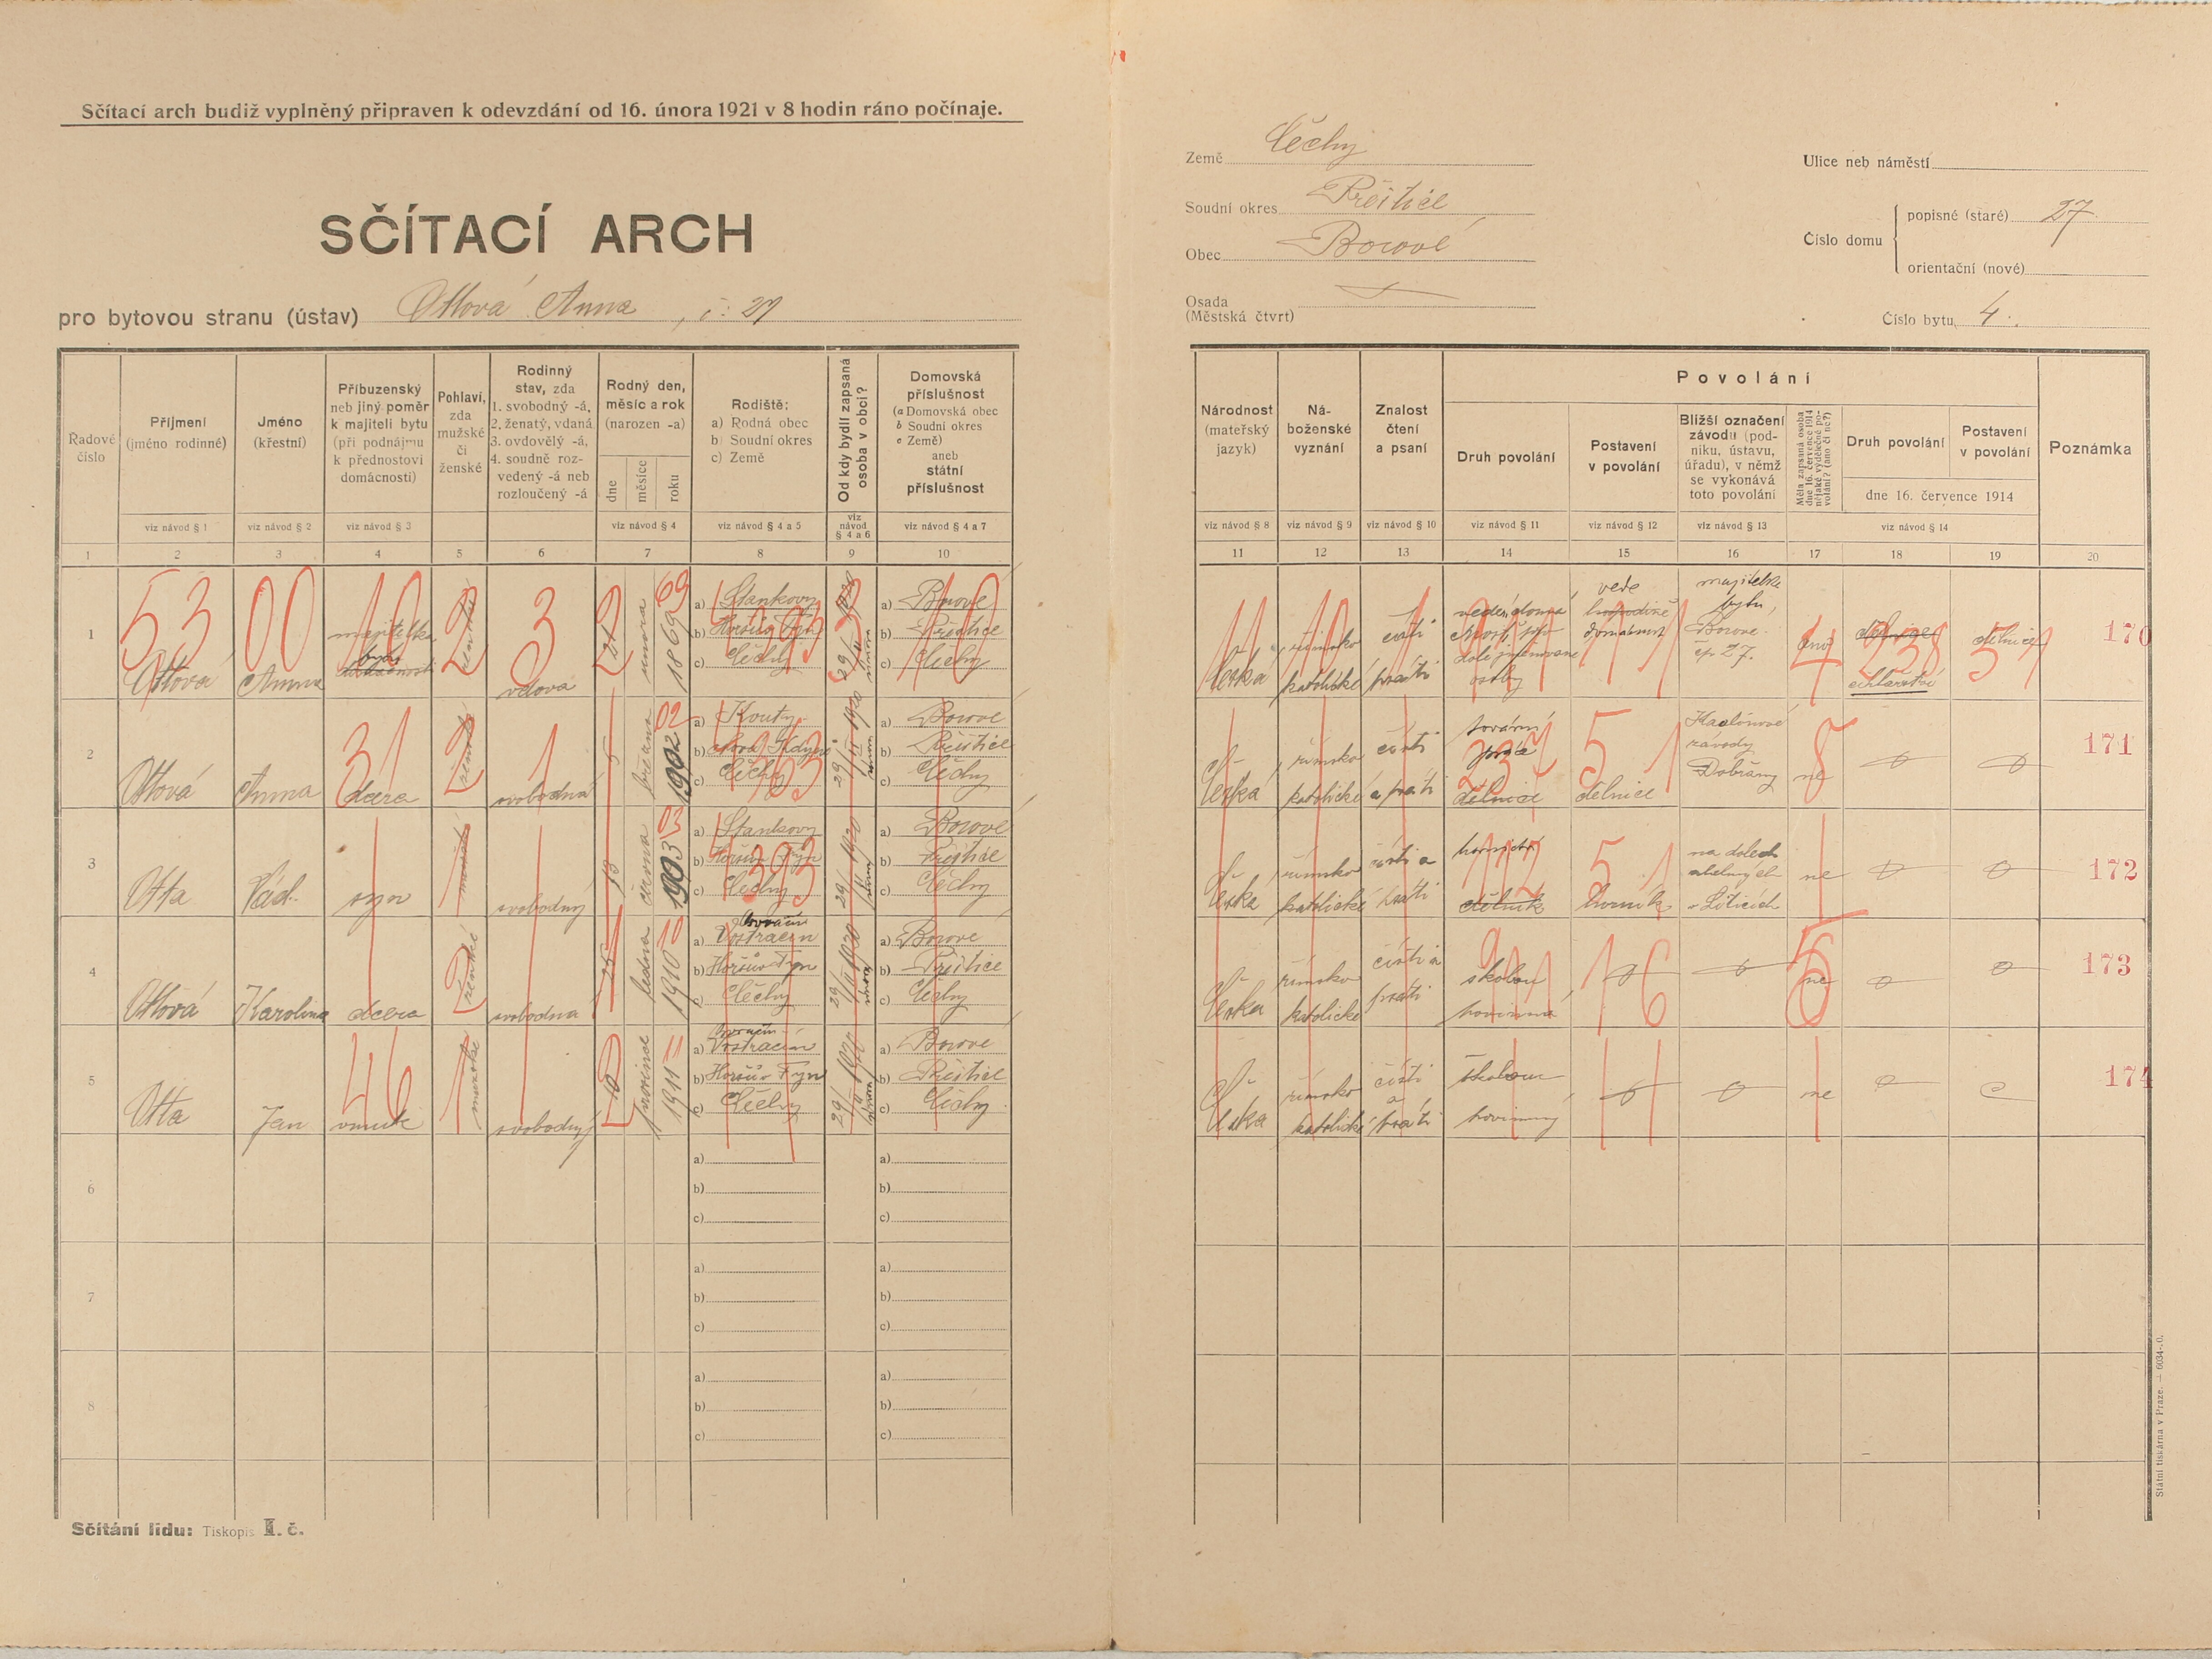 Sčítací arch budiž vyplněný připraven k odevzdání od 16. února 1921 v 8 hodin ráno počínaje.
SČÍTACÍ ARCH
pro bytovou stranu (ústav) Ottová Anna, č: 27
Země Čechy
Soudní okres Přeštice
Obec Borové
Osada
(Městská čtvrt)
Ulice neb náměstí
Číslo domu
popisné (staré) 27.
orientační (nové)
Číslo bytu 4.
Řadové číslo
Příjmení (jméno rodinné)
Jméno (křestní)
Příbuzenský neb jiný poměr k majiteli bytu (při podnájmu k přednostovi domácnosti)
Pohlaví, zda mužské či ženské
Rodinný stav, zda 1. svobodný -á, 2. ženatý, vdaná 3. ovdovělý -á, 4. soudně rozvedený -á neb rozloučený -á
Rodný den, měsíc a rok (narozen -a)
dne měsíce roku
Rodiště: a) Rodná obec b) Soudní okres c) Země
Od kdy bydlí zapsaná osoba v obci?
Domovská příslušnost (a Domovská obec b Soudní okres c Země) aneb státní příslušnost
Národnost (mateřský jazyk)
Náboženské vyznání
Znalost čtení a psaní
Povolání
Druh povolání
Postavení v povolání
Bližší označení závodu (podniku, ústavu, úřadu), v němž se vykonává toto povolání
Měla zapsaná osoba dne 16. července 1914 nějaké výdělečné povolání? (ano či ne?)
Druh povolání
Postavení v povolání
dne 16. července 1914
Poznámka
viz návod § 1 viz návod § 2 viz návod § 3 viz návod § 4 viz návod § 4 a 5 viz návod § 4 a 6 viz návod § 4 a 7
viz návod § 8 viz návod § 9 viz návod § 10 viz návod § 11 viz návod § 12 viz návod § 13 viz návod § 14
1 2 3 4 5 6 7 8 9 10
11 12 13 14 15 16 17 18 19 20
1 53 00 10 2 3 2 69
Ottová Anna majitelka bytu ženské vdova února 1869
a) Stankovy b) Horšův Týn c) Čechy
a) Borové b) Přeštice c) Čechy
Česká římsko katolické čísti psáti
vede domácnost
majitelka bytu, Borové čp 27.
ano 4 238 dělnice 51 170
2 31 2 1 02
Ottová Anna dcera ženské svobodná 5 března 1902
a) Kouty b) Nová Kdyně c) Čechy
29/II 1920 únor
a) Borové b) Přeštice c) Čechy
Česká římsko katolické čísti a psáti
tovární 237 dělnice 5 1 dělnice
Kaolinové závody Dobřany
ne 8 171
3
Otta Lád. syn mužské svobodný 13 června 1903 03
a) Stankovy b) Horšův Týn c) Čechy 4393
29/II 1920 únor
a) Borové b) Přeštice c) Čechy
Česká římsko katolické čísti a psáti
117 dělník 5 1 horník
na dolech uhelných v Lititcích
ne 172
4
Ottová Karolina dcera 2 ženské svobodná 25 ledna 1910 10
a) Vostracin b) Horšův Týn c) Čechy
29/II 1920 února
a) Borové b) Přeštice c) Čechy
Česká římsko katolické čísti a psáti
školou povinná 911 16
ne 173
5 46 1
Otta Jan vnuk mužské svobodný 12 prosince 1911 11
a) Vostracin b) Horšův Týn c) Čechy
29/II 1920 únor
a) Borové b) Přeštice c) Čechy
Česká římsko katolické čísti a psáti
školou povinný
ne 174
6 a) b) c) a) b) c)
7 a) b) c) a) b) c)
8 a) b) c) a) b) c)
Sčítání lidu: Tiskopis I. č.
Státní tiskárna v Praze.